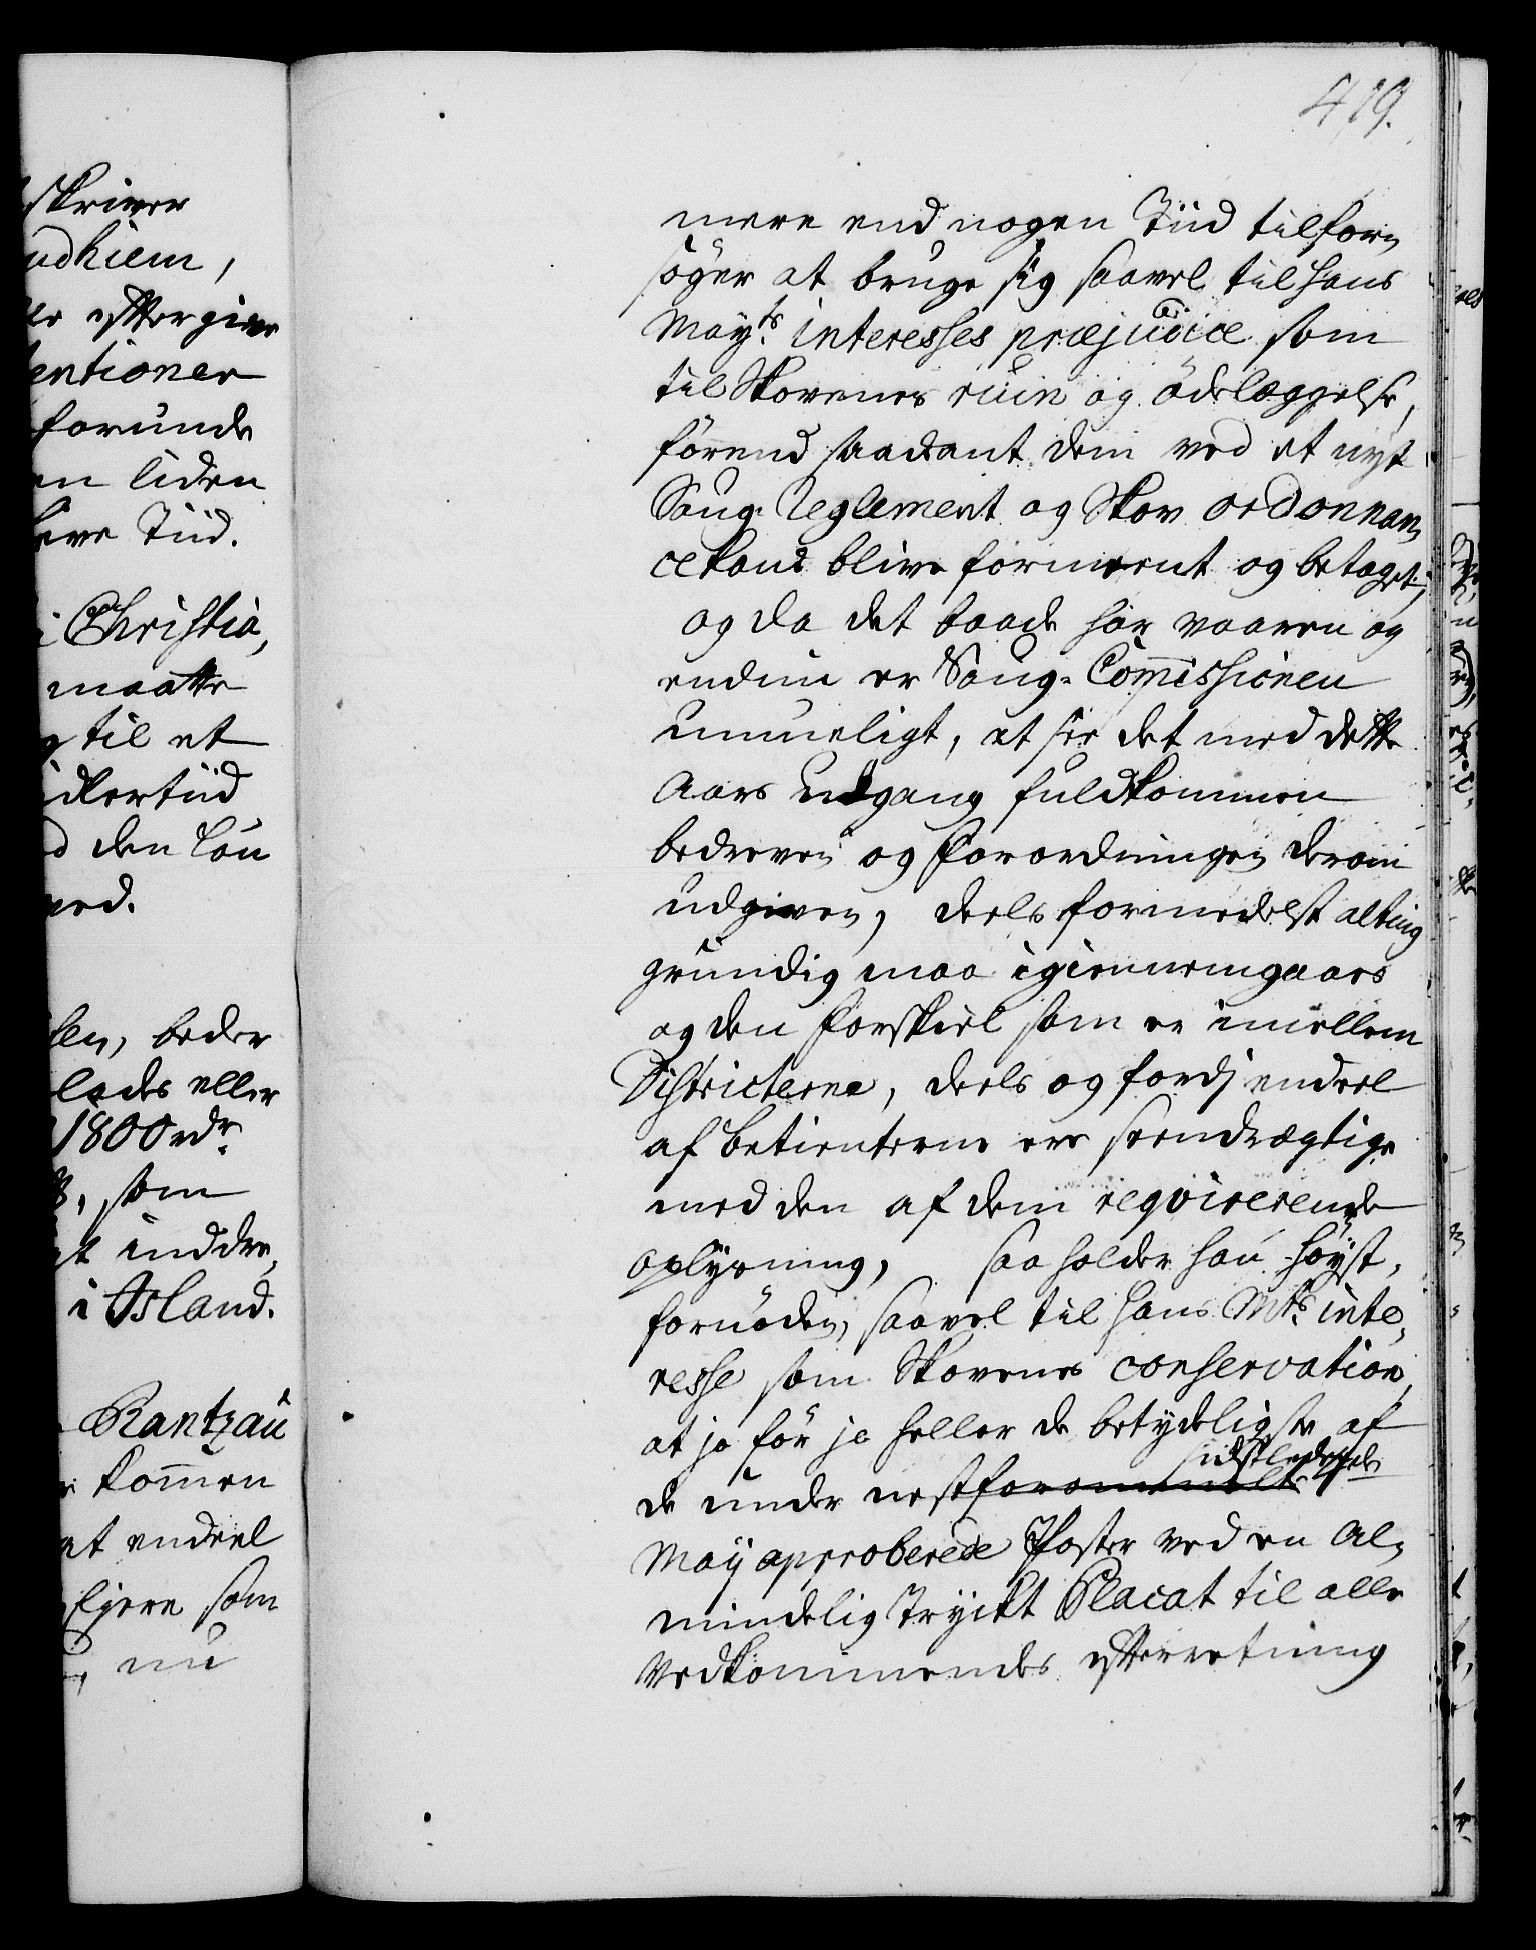 skriver
udhiem,
efftergive
entioner
forunde
en liden
Tiid.
i Christia,
maatte
til et
idlertiid
den Lou
ved.
sen, beder
lades eller
1800 rdr.
som
inddre,
i Island.
Rantzau
kom̄en
at endeel
Ejere som
nu
419.
mere end nogen Tiid tilforn,
söger at bruge sig saavel til Hans
Mayts. interesses præjudice som
til Skovenes ruin og ödelæggelse,
förend saadant dem ved et nyt
Saug-Reglement og Skov ordonnan,
ce kand blive formeent og betaget;
og da det baade har vaaren og
endnu er Saug-Com̄issionen
umueligt, at see det med dette
Aars udgang fuldkommen
bedreven og Forordningen derom
udgiven, deels formedelst alting
grundig maa igiennemgaaes
og den Forskiel som er imellem
Districterne, deels og fordj endeel
af betienterne ere seendrægtige
med den af dem reqvirerende
oplysning, saa holder han höyst,
fornöden, saavel til Hans Mts. inte,
resse som Skovenes conservation,
at jo för jo heller de betydeligste af
sidstledene
de under nestforommelte 4de
Maij approberede Poster ved en Al,
mindelig Tryckt Placat til alle
Vedkommendes efterretning